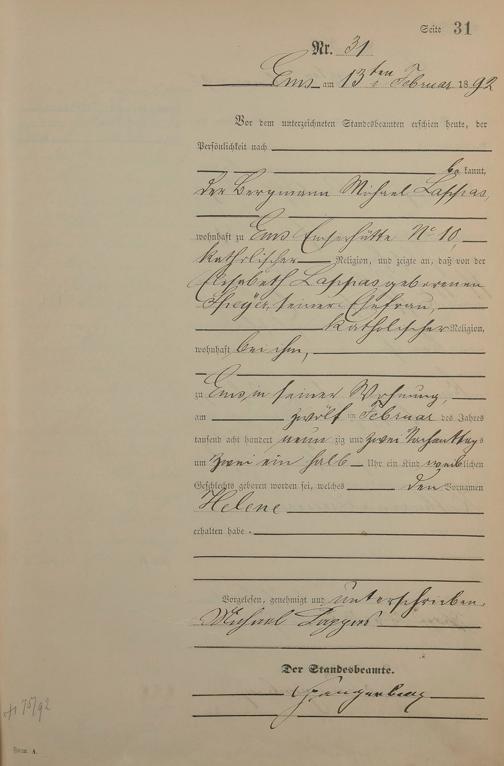 Seite 31
Nr. 31
Ems am 13ten Februar 1892
Vor dem unterzeichneten Standesbeamten erschien heute, der
Persönlichkeit nach
be kannt,
der Bergmann Michael Lappas,
wohnhaft zu Ems Emserhütte No 10,
katholischer Religion, und zeigte an, daß von der
Elisabeth Lappas geborenen
seiner Ehefrau,
katholischer Religion,
wohnhaft bei ihm,
zu Ems, in seiner Wohnung,
am zwölf ten Februar des Jahres
tausend acht hundert neun zig und zwei Nachmittags
um zwei ein halb Uhr ein Kind weiblichen
Geschlechts geboren worden sei, welches den Vornamen
Helene
erhalten habe.
Vorgelesen, genehmigt und unterschrieben.
Michael Lappas
Der Standesbeamte.
75/92
Form A.